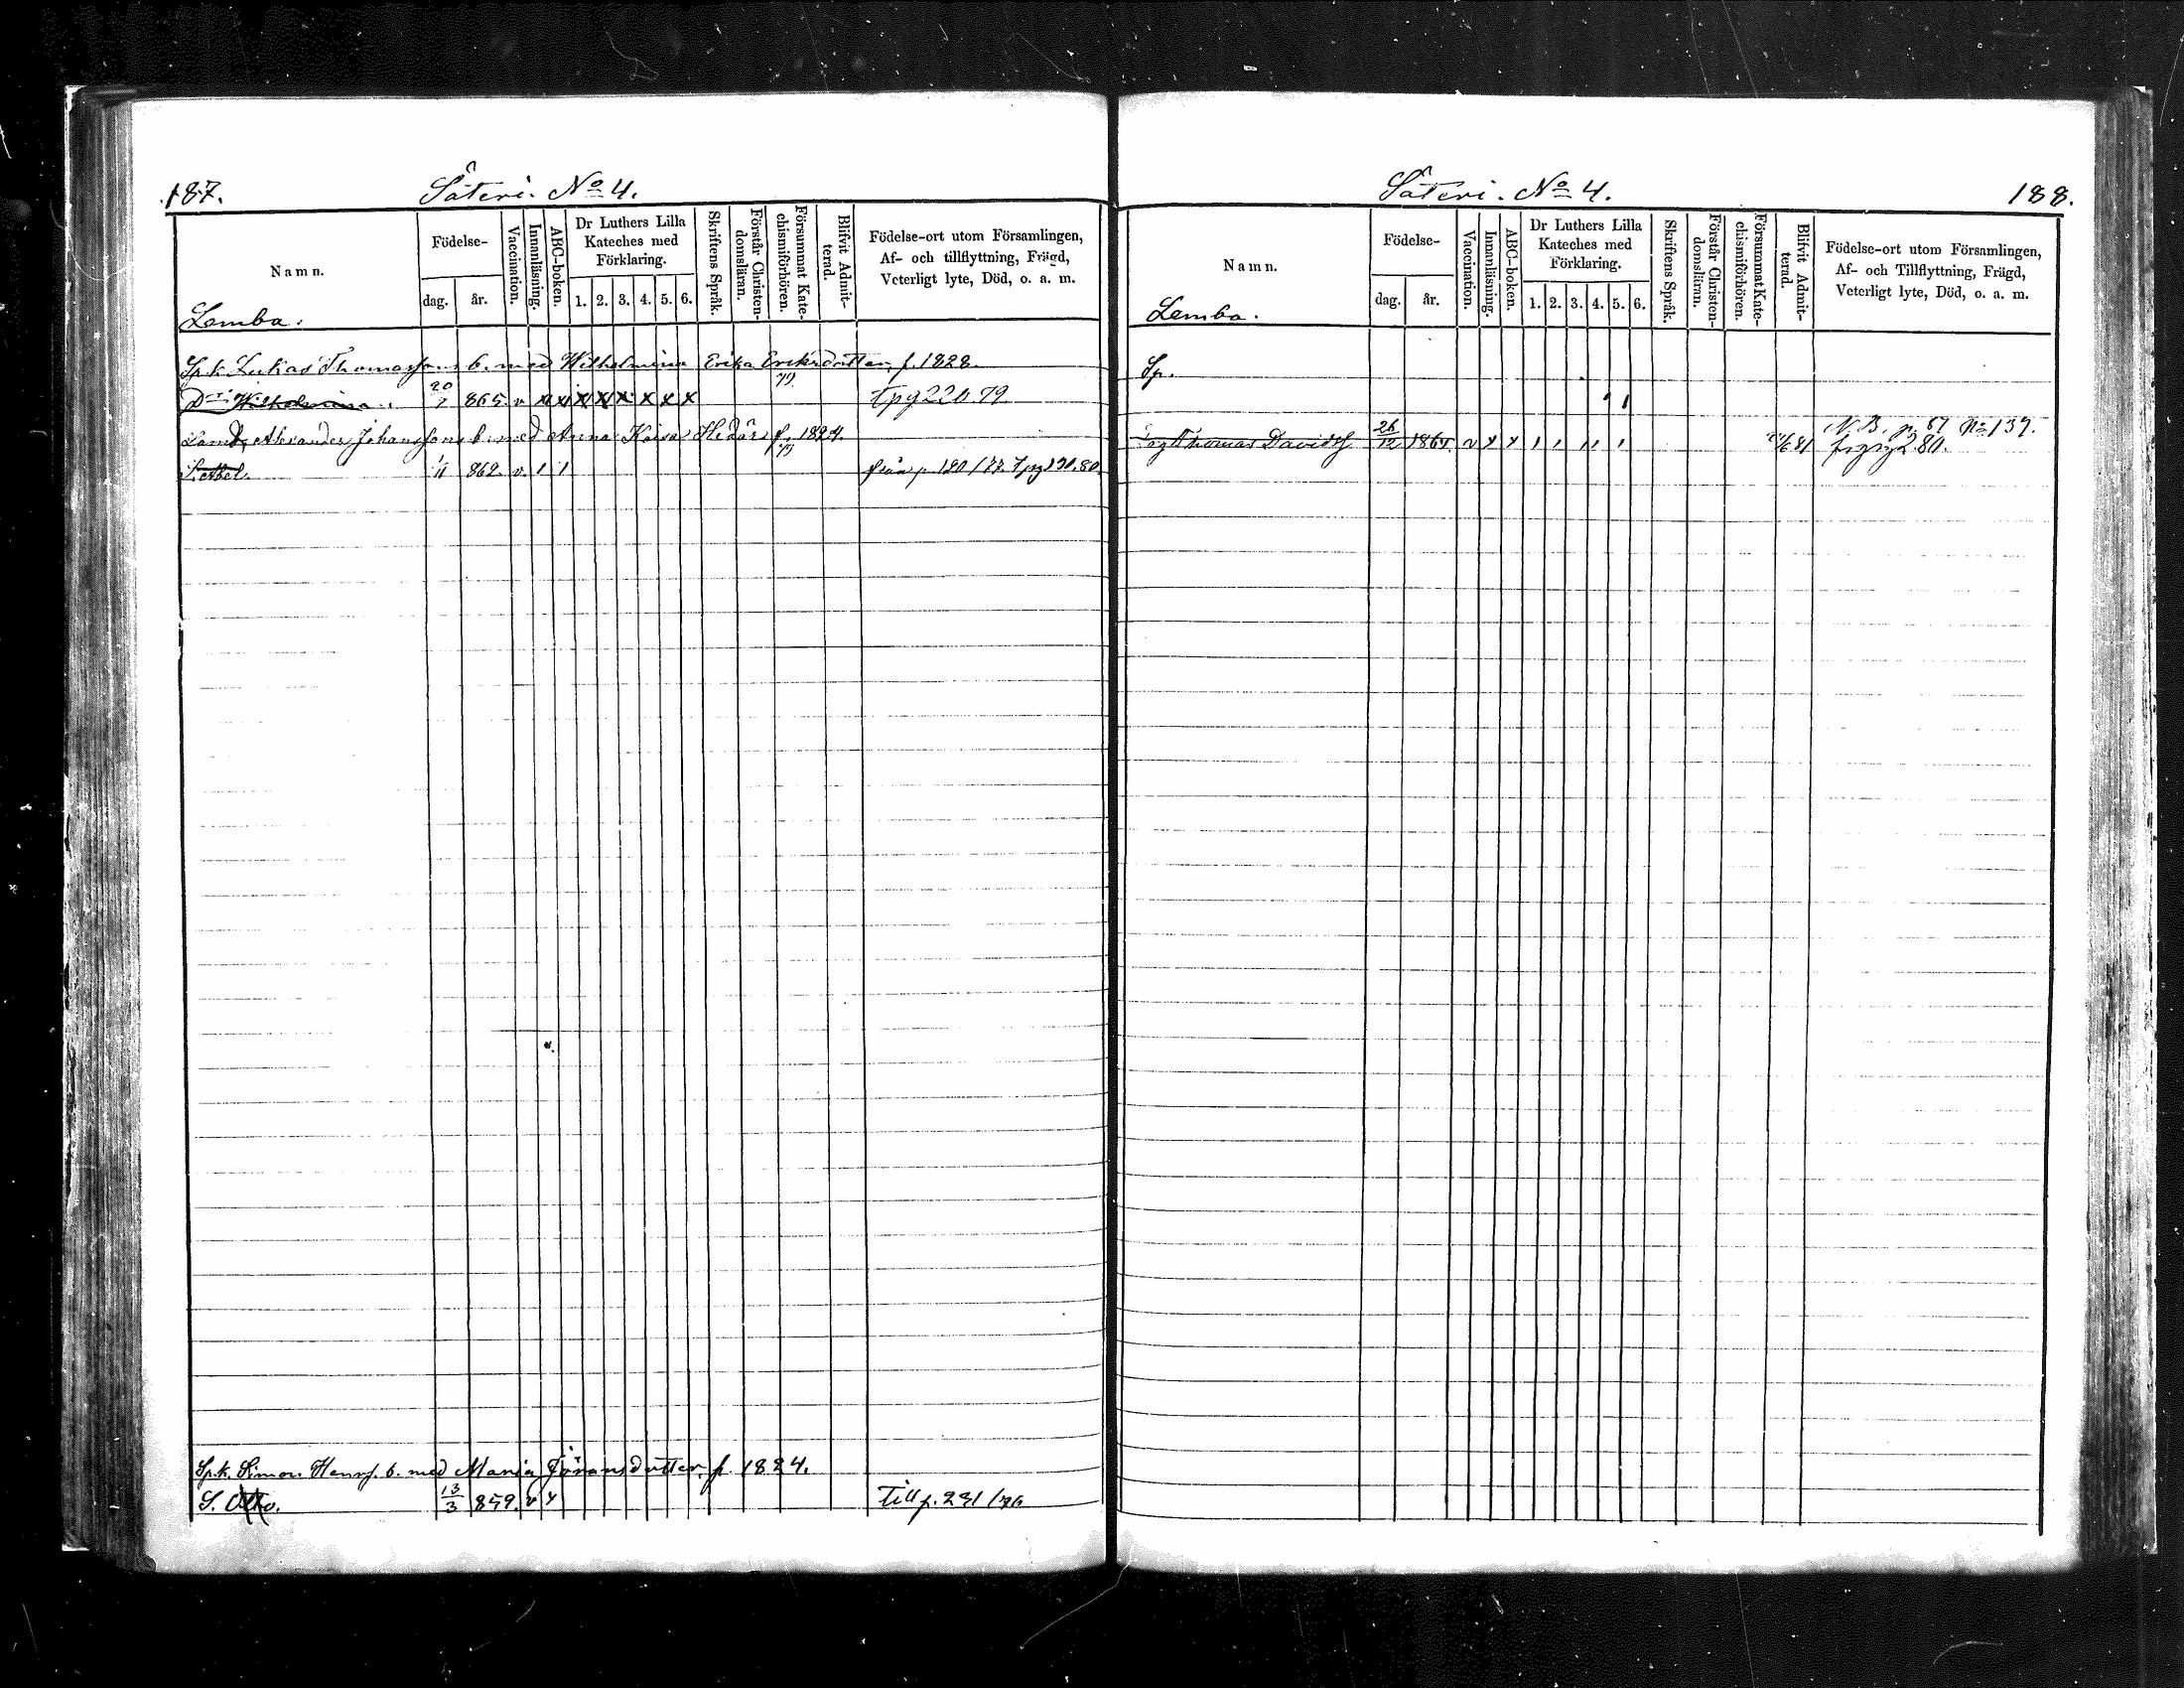 187. Säteri. No 4.
Namn.
Födelse-
dag. år.
Vaccination.
Innanläsning.
ABC-boken.
Dr Luthers Lilla Kateches med Förklaring.
1. 2. 3. 4. 5. 6.
Skriftens Språk.
Förstår Christendomsläran.
Försummat Katechismiförhören.
Blifvit Admitterad.
Födelse-ort utom Församlingen,
Af- och tillflyttning, Frägd,
Veterligt lyte, Död, o. a. m.
Lemba.
Sp.k. Lukas Thomassons b. med Wilhelmina Erika Eriksdotter, f. 1828.
Dr Wilhelmina. 20/7 865. v x x x x x x x x 79 tpg 220.79.
Landb. Alexander Johanssons b. med Anna Kaisa Hedàr f. 1824.
S. Abel. 1/11 862. v. 1 1 79 från p. 180/77. tpg 191.80.
Sp.k. Simon Henrs. b. med Maria Göransdotter, f. 1824.
S. Otto. 13/3 859. v x Till p. 231/76
Säteri. No 4. 188.
Namn.
Födelse-
dag. år.
Vaccination.
Innanläsning.
ABC-boken.
Dr Luthers Lilla Kateches med Förklaring.
1. 2. 3. 4. 5. 6.
Skriftens Språk.
Förstår Christendomsläran.
Försummat Katechismiförhören.
Blifvit Admitterad.
Födelse-ort utom Församlingen,
Af- och Tillflyttning, Frägd,
Veterligt lyte, Död, o. a. m.
Lemba.
Sp.
N. B. p. 67 No 139.
Thomas Davidss 26/12 1864. v x x 1 1 1 1 1 /6 81